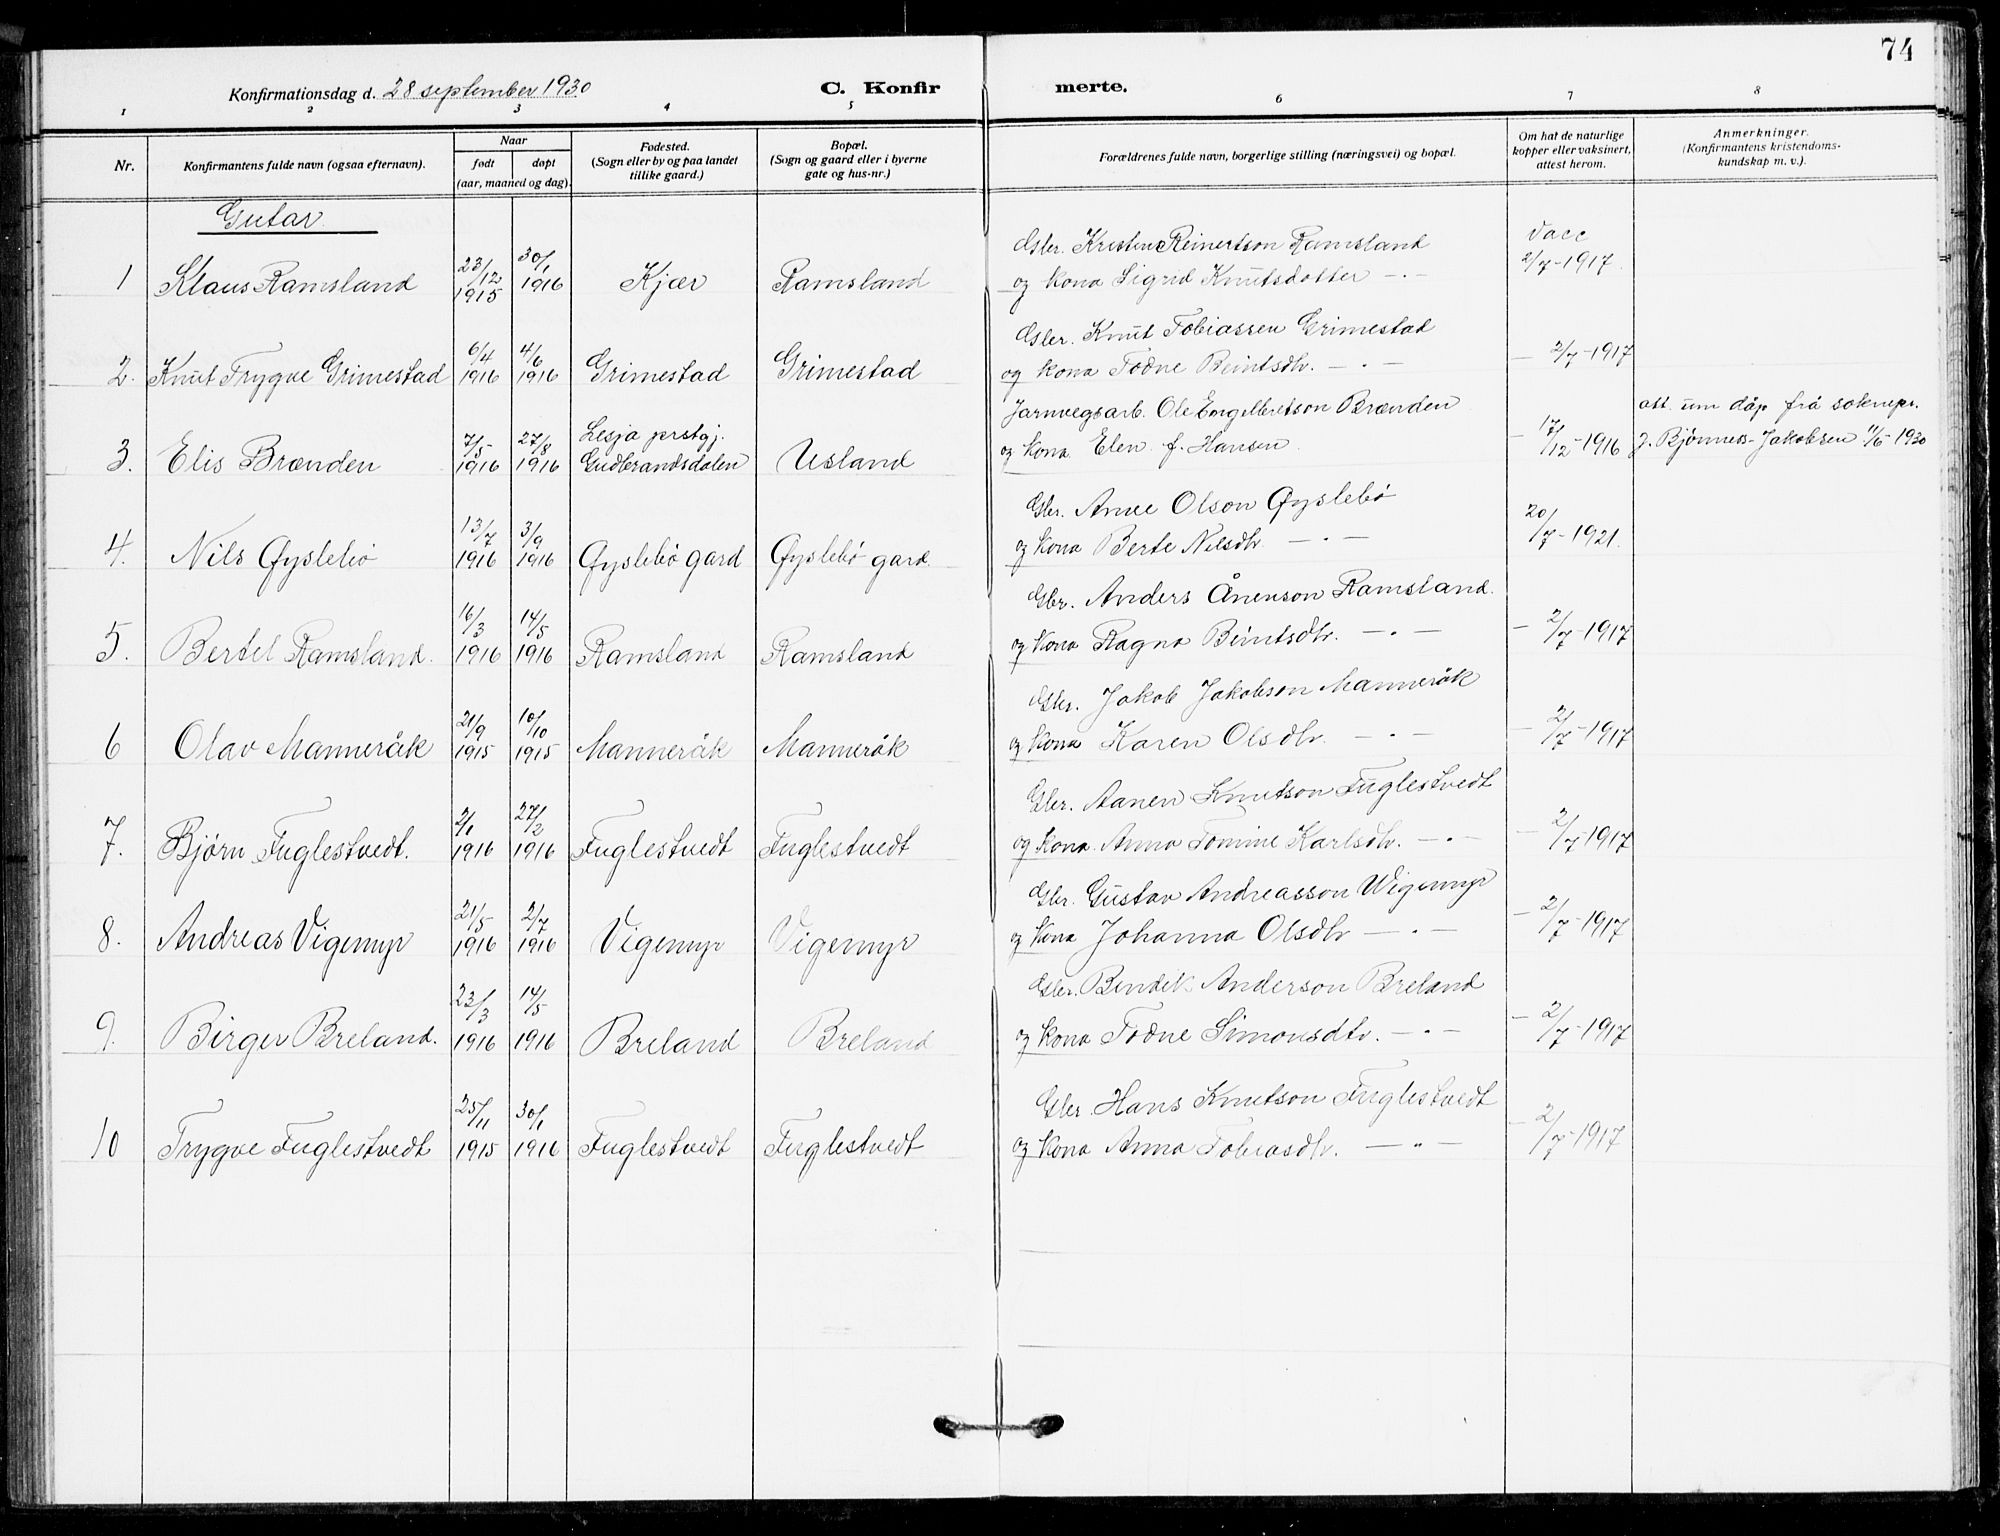 74
Konfirmationsdag d. 28 september 1930
C. Konfir merte.
1 2 3 4 5 6 7 8
Nr.
Konfirmantens fulde navn (ogsaa efternavn).
Naar
født døpt
(aar, maaned og dag).
Fødested.
(Sogn eller by og paa landet
tillike gaard.)
Bopæl.
(Sogn og gaard eller i byerne
gate og hus-nr.)
Forældrenes fulde navn, borgerlige stilling (næringsvei) og bopæl.
Om hat de naturlige
kopper eller vaksinert,
attest herom.
Anmerkninger.
(Konfirmantens kristendoms-
kundskap m. v.).
Gutar
1 Klaus Ramsland 23/12 1915 30/1 1916 Kjær Ramsland
Gbr. Kristen Reinertson Ramsland
og kona Sigrid Knutsdotter — " —
Vacc
2/7-1917.
2. Knut Trygve Grimestad 6/4 1916 4/6 1916 Grimestad Grimestad
Gbr. Knut Tobiassen Grimestad
og kona Todne Beintsdtr. — " —
— 2/7-1917
3. Elis Brænden 7/5 1916 27/8 1916 Lesja prstgj. Gudbrandsdalen Usland
Jarnvegsarb. Ole Engelbretson Brænden
og kona Elen f. Hansen
— 17/12-1916
att. um dåp frå soknepr.
J. Bjønnes-Jakobsen 11/5-1930
4. Nils Øyslebø 13/7 1916 3/9 1916 Øyslebø gard Øyslebø gard.
Gbr. Anne Olson Øyslebø
og kona Berte Nilsdtr. — " —
20/7-1921.
5. Bertel Ramsland. 16/3 1916 14/5 1916 Ramsland Ramsland
Gbr. Anders Ånenson Ramsland.
og kona Ragna Beintsdtr. — " —
— 2/7-1917
6 Olav Manneråk 21/9 1915 10/10 1915 Manneråk Manneråk
Gbr. Jakob Jakobson Manneråk
og kona Karen Olsdtr. — " —
— 2/7-1917
7. Bjørn Fuglestvedt. 2/1 1916 27/2 1916 Fuglestvedt Fuglestvedt
Gbr. Aanen Knutson Fuglestvedt
og kona Anna Tomine Karlsdtr. — " —
— 2/7-1917
8. Andreas Vigemyr 21/5 1916 2/7 1916 Vigemyr Vigemyr
Gbr. Gustav Andreasson Wigemyr
og kona Johanna Olsdtr — " —
— 2/7-1917
9. Birger Breland. 23/3 1916 14/5 1916 Breland Breland
Gbr. Bendik Anderson Breland
og kona Todne Simonsdtr. — " —
— 2/7-1917
10 Trygve Fuglestvedt 25/11 1915 30/1 1916 Fuglestvedt Fuglestvedt
Gbr. Hans Knutson Fuglestvedt
og kona Anna Tobiasdtr. — " —
— 2/7-1917